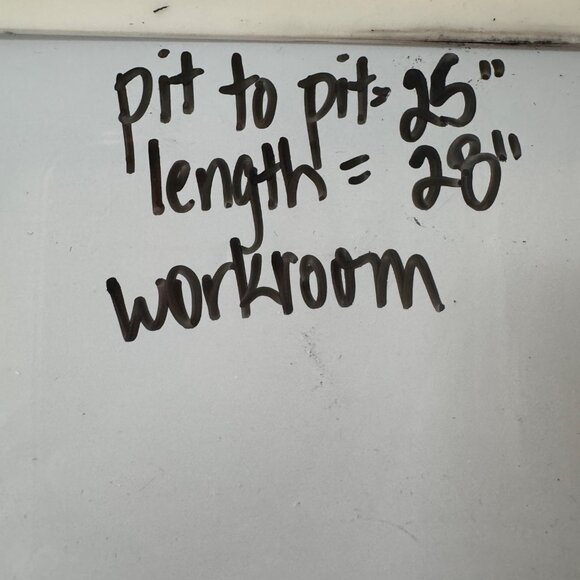 pit to pit= 25"
length = 28"
workroom